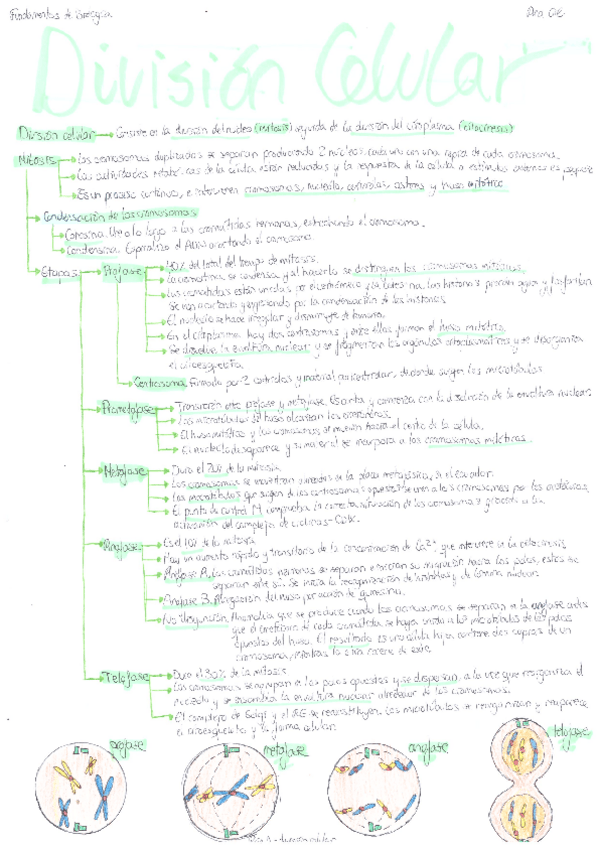 Fundamentos de
División Celular
División celular → Consiste en la división del núcleo (mitosis) seguida de la división del citoplasma (citocinesis)
Mitosis → Los cromosomas duplicados se separan produciendo 2 núcleos cada uno con una copia de cada cromosoma.
Las actividades metabólicas de la célula están reducidas y la respuesta de la célula a estímulos externos es pequeña
Es un proceso continuo, e intervienen cromosomas, nucleolo, centriolos, ásteres y huso mitótico
Condensación de los cromosomas
Cohesina. Une a lo largo a las cromátidas hermanas, estrechando el cromosoma.
Condensina. Espiraliza el ADN acortando el cromosoma.
Etapas → Profase → del total del tiempo de mitosis.
La cromatina se condensa y al hacerlo se distinguen los cromosomas mitóticos
Las cromátidas están unidas por el centrómero
por la condensación de las histonas
El nucleolo se hace irregular y disminuye de tamaño.
En el citoplasma hay dos centrosomas y entre ellos forman el huso mitótico
Se disuelve la envoltura nuclear y se fragmentan los orgánulos citoplasmáticos y se desorganiza
el citoesqueleto.
Centrosoma. Formado por 2 centriolos y material pericentriolar, de donde surgen los microtúbulos
Prometafase → Transición entre profase y metafase. Es corta y comienza con la disolución de la envoltura nuclear
Los microtúbulos del huso alcanzan los cromosomas.
El huso mitótico y los cromosomas se mueven hacia el centro de la célula.
El nucleolo desaparece y su material se incorpora a los cromosomas mitóticos.
Metafase → Dura el de la mitosis.
Los cromosomas se muestran ordenados en la placa metafásica, en el ecuador.
Los microtúbulos que surgen de los centrosomas opuestos se unen a los cromosomas por los
El punto de control M comprueba la correcta alineación de los cromosomas y procede a la
activación del complejo de ciclinas-Cdk.
Anafase → Es el de la mitosis.
Hay un aumento rápido y transitorio de la concentración de Ca2+ que interviene en la citocinesis
Anafase A. Las cromátidas hermanas se separan e inician su migración hacia los polos, estos se
separan entre sí. Se inicia la reorganización de
Anafase B. Elongación del huso por acción de
No disyunción. Anomalía que se produce cuando los cromosomas se separan en la anafase antes
que el centrómero de cada cromátida se haya unido a los microtúbulos de los polos
opuestos del huso. El resultado es una célula hija contiene dos copias de un
cromosoma, mientras la otra carece de este.
Telofase → Dura el 30% de la mitosis
Los cromosomas se agrupan en los polos opuestos y se dispersan, a la vez que reorganiza el
nucleolo y se ensambla la envoltura nuclear alrededor de los cromosomas.
El complejo de Golgi y el RE se reconstituyen. Los microtúbulos se reorganizan y reaparece
el citoesqueleto y la forma celular.
profase
metafase
anafase
telofase